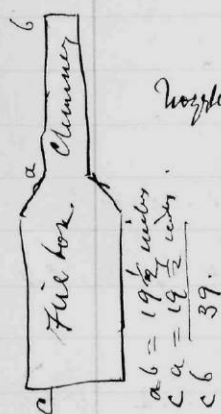 b
a
c
Chimney
Fire box.
Nozzle
ab = 19 1/2 inches
ca = 19 1/2 inches
cb 39.